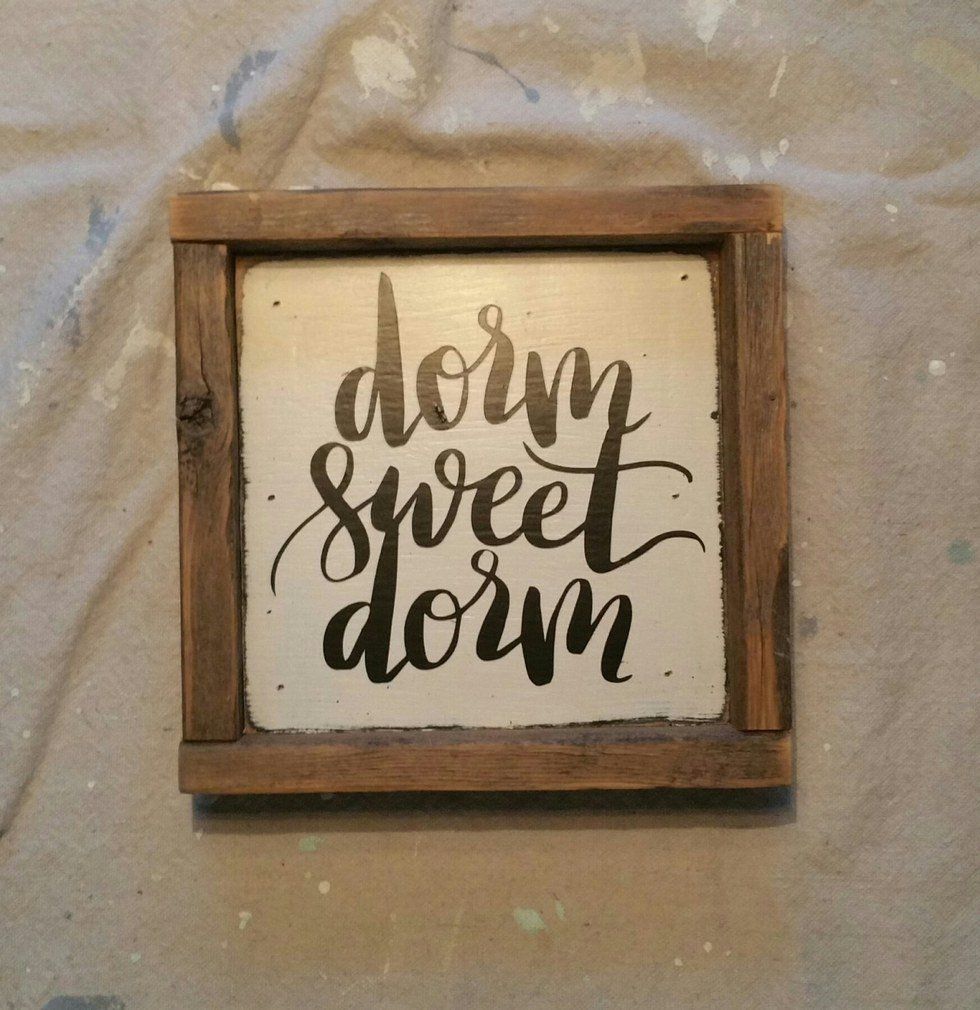 dorm
sweet
dorm